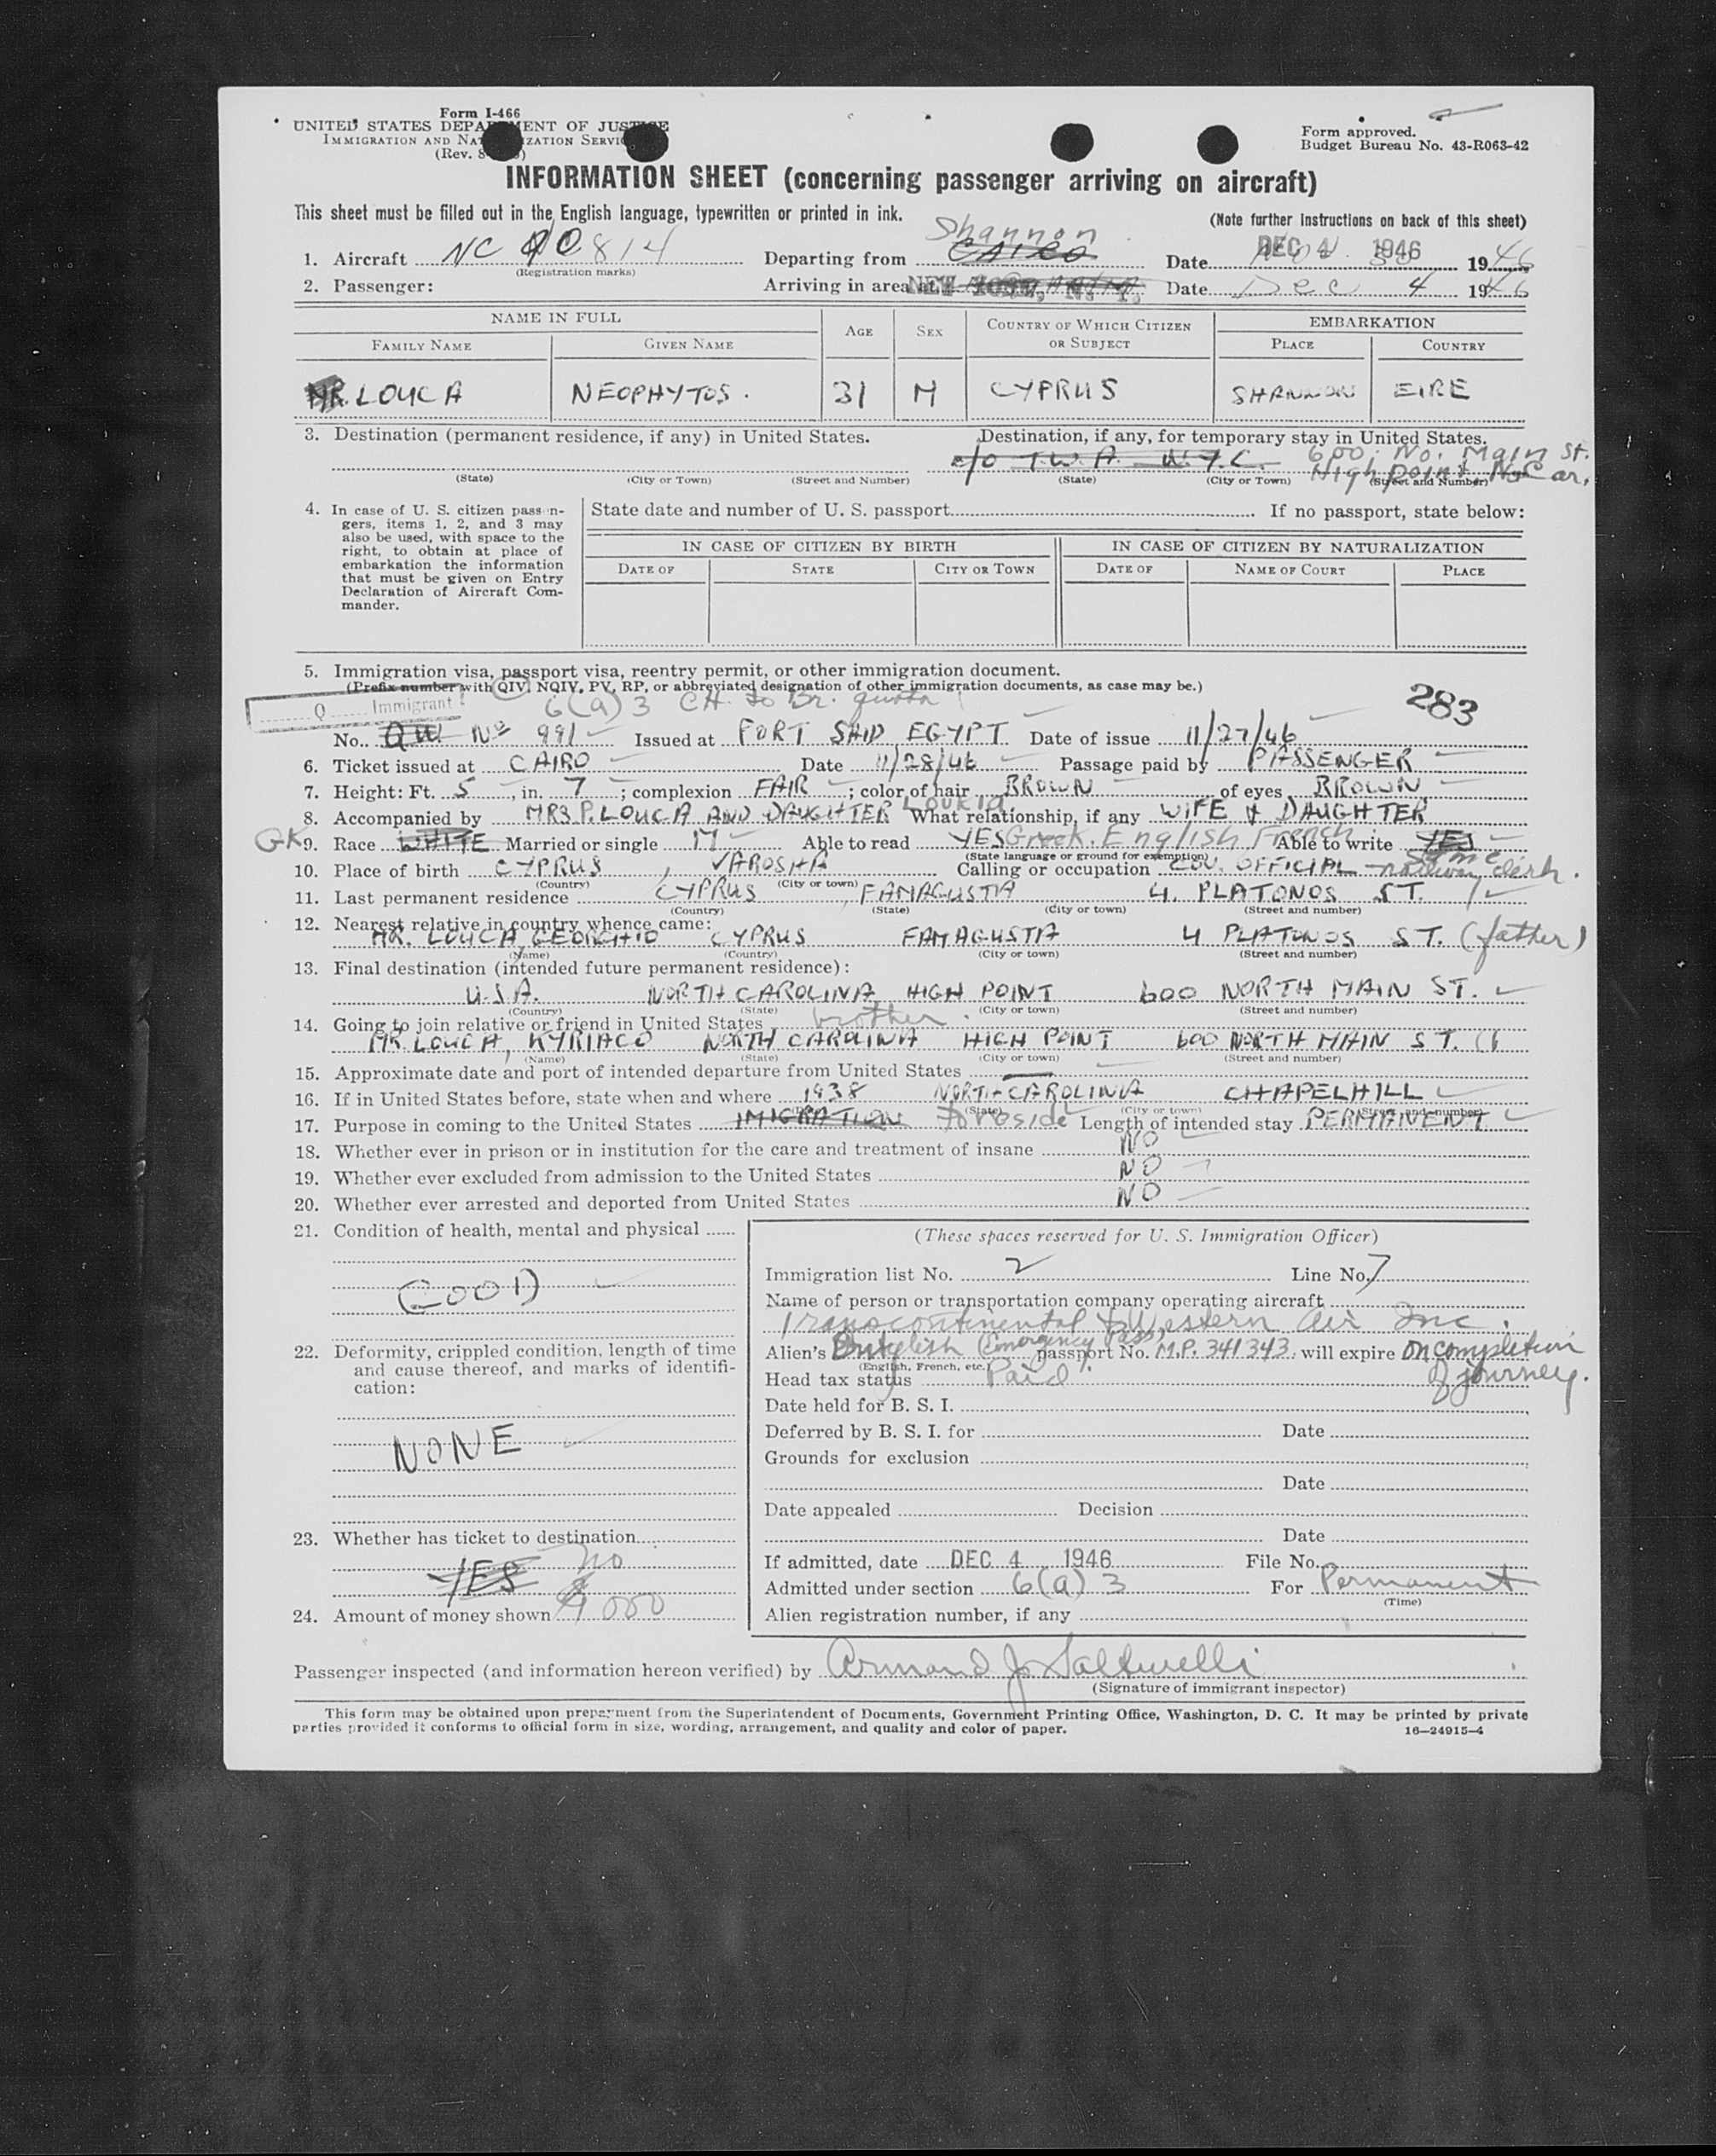 Form I-466
UNITED STATES DEPARTMENT OF JUSTICE
IMMIGRATION AND NATURALIZATION SERVICE
(Rev. 8
Form approved.
Budget Bureau No. 43-R063-42
INFORMATION SHEET (concerning passenger arriving on aircraft)
This sheet must be filled out in the English language, typewritten or printed in ink.
(Note further instructions on back of this sheet)
Shannon
1. Aircraft NC 90814 Departing from CAIRO Date DEC 4 1946 1946
(Registration marks)
2. Passenger: Arriving in area at NEW YORK, N. Y. Date Dec 4 1946
NAME IN FULL AGE SEX COUNTRY OF WHICH CITIZEN OR SUBJECT EMBARKATION
FAMILY NAME GIVEN NAME PLACE COUNTRY
MR. LOUCA NEOPHYTOS. 31 M CYPRUS SHANNON EIRE
3. Destination (permanent residence, if any) in United States. Destination, if any, for temporary stay in United States.
c/o T.W.A. N.Y.C. 600 No. Main St.
High Point N. Car.
(State) (City or Town) (Street and Number) (State) (City or Town) (Street and Number)
4. In case of U. S. citizen passengers, items 1, 2, and 3 may also be used, with space to the right, to obtain at place of embarkation the information that must be given on Entry Declaration of Aircraft Commander.
State date and number of U. S. passport If no passport, state below:
IN CASE OF CITIZEN BY BIRTH IN CASE OF CITIZEN BY NATURALIZATION
DATE OF STATE CITY OR TOWN DATE OF NAME OF COURT PLACE
5. Immigration visa, passport visa, reentry permit, or other immigration document.
(Prefix number with QIV, NQIV, PV, RP, or abbreviated designation of other immigration documents, as case may be.)
283
Q Immigrant
6(a)3 CH. to Br. quota
No. QIV No 991 Issued at PORT SAID EGYPT Date of issue 11/27/46
6. Ticket issued at CAIRO Date 11/28/46 Passage paid by PASSENGER
7. Height: Ft. 5, in. 7; complexion FAIR; color of hair BROWN of eyes BROWN
Loukia
8. Accompanied by MRS P. LOUCA AND DAUGHTER What relationship, if any WIFE & DAUGHTER
GK 9. Race WHITE Married or single M Able to read YES Greek English French Able to write YES
same
(State language or ground for exemption)
10. Place of birth CYPRUS, VAROSHA Calling or occupation GOV. OFFICIAL - railway clerk.
(Country) (City or town)
11. Last permanent residence CYPRUS, FAMAGUSTA 4. PLATONOS ST.
(Country) (State) (City or town) (Street and number)
12. Nearest relative in country whence came:
MR. LOUCA, GEORGHIO CYPRUS FAMAGUSTA 4 PLATONOS ST. (father)
(Name) (Country) (City or town) (Street and number)
13. Final destination (intended future permanent residence):
U.S.A. NORTH CAROLINA HIGH POINT 600 NORTH MAIN ST.
(Country) (State) (City or town) (Street and number)
14. Going to join relative or friend in United States brother.
MR. LOUCA, KYRIACO NORTH CAROLINA HIGH POINT 600 NORTH MAIN ST.
(Name) (State) (City or town) (Street and number)
15. Approximate date and port of intended departure from United States
16. If in United States before, state when and where 1938 NORTH CAROLINA CHAPELHILL
(State) (City or town) (Street and number)
17. Purpose in coming to the United States IMIGRATION To reside Length of intended stay PERMANENT
18. Whether ever in prison or in institution for the care and treatment of insane NO
19. Whether ever excluded from admission to the United States NO
20. Whether ever arrested and deported from United States NO
21. Condition of health, mental and physical
GOOD
22. Deformity, crippled condition, length of time and cause thereof, and marks of identification:
NONE
23. Whether has ticket to destination
YES no
24. Amount of money shown
(These spaces reserved for U. S. Immigration Officer)
Immigration list No. 2 Line No. 7
Name of person or transportation company operating aircraft
Transcontinental & Western Air Inc.
Alien's British (Emergency Pass) passport No. M.P. 341343. will expire on completion of journey.
(English, French, etc.)
Head tax status Paid
Date held for B. S. I.
Deferred by B. S. I. for Date
Grounds for exclusion
Date
Date appealed Decision
Date
If admitted, date DEC 4 1946 File No.
Admitted under section 6(a) 3 For Permanent
(Time)
Alien registration number, if any
Passenger inspected (and information hereon verified) by Armand J.
(Signature of immigrant inspector)
This form may be obtained upon prepayment from the Superintendent of Documents, Government Printing Office, Washington, D. C. It may be printed by private
parties provided it conforms to official form in size, wording, arrangement, and quality and color of paper.
16—24915-4